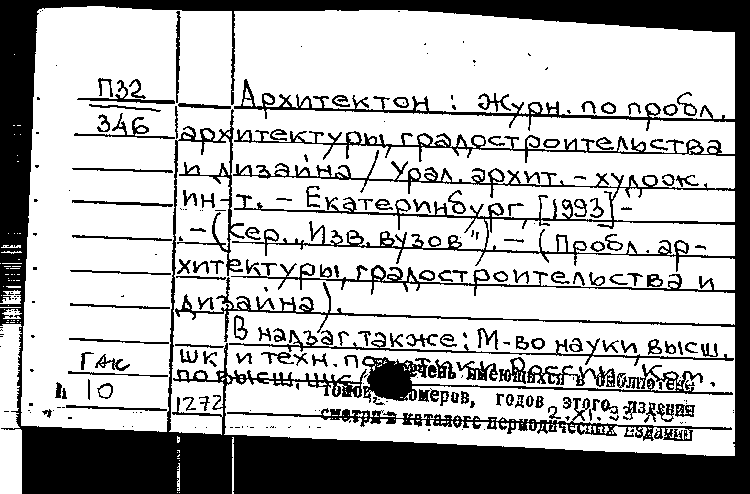 П32
346
Архитектон : Журн. по пробл.
архитектуры, градостроительства
и дизайна / Урал. архит. - худож.
ин-т. - Екатеринбург, [1993] -
. - (Сер. „Изв. вузов"). - (Пробл. ар-
хитектуры, градостроительства и
дизайна).
В надзаг. также: М-во науки, высш.
шк и техн. политики России, Ком.
по высш. шк
ГАК
10
1272
имеющихся в библиотеке
томов, номеров, годов этого издания
смотри в каталоге периодических изданий
2.XI.93